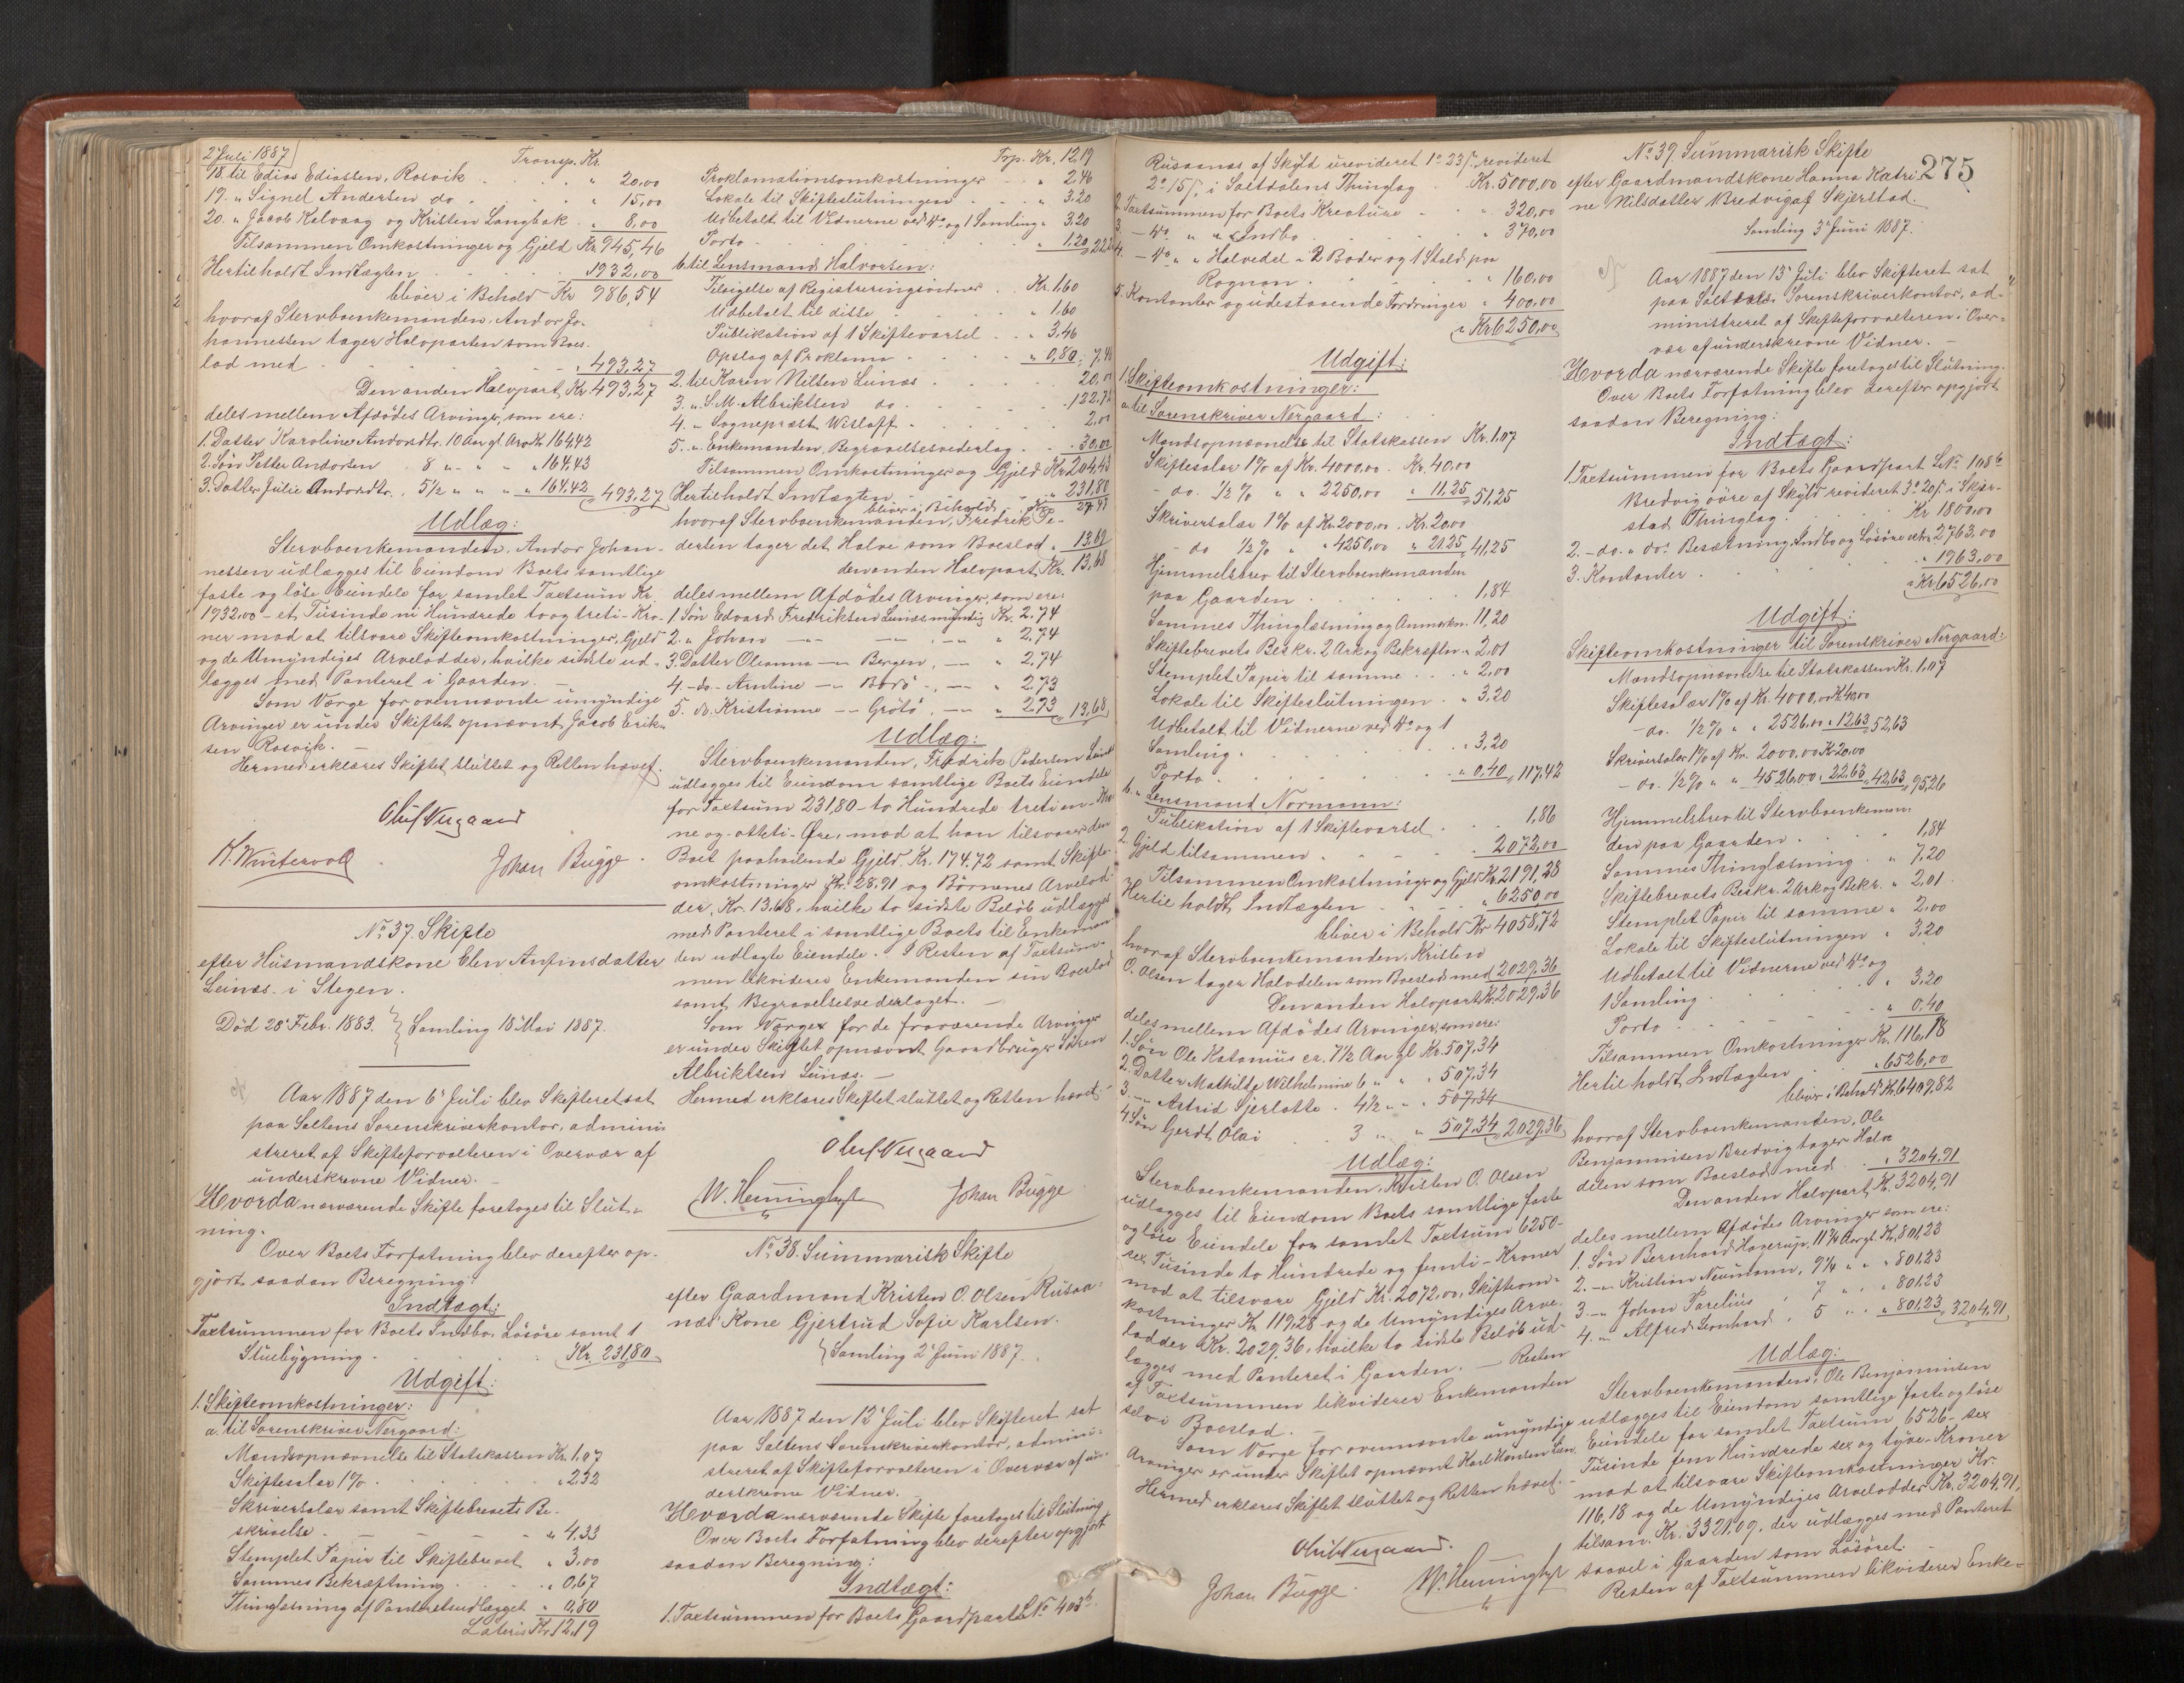 2' Juli 1887
Transp. Kr.
18 til Edias Ediassen, Rosvik . . . " 20,00
19. " Signel Andersen do . . . " 15,00
20. " Jacob Kalvaag og Kristen Langbak . " 8,00
Tilsammen Omkostninger og Gjeld Kr. 945,46
Hertil holdt Indtægten . . . 1932,00
bliver i Behold Kr 986,54
hvoraf Stervboenkemanden, Andor Jo-
hannessen tager Halvparten som Boes-
lod med . . . " 493,27
Den anden Halvpart Kr. 493,27
deles mellem Afdödes Arvinger, som ere:
1. Datter Karoline Andorsdtr. 10 Aar gl. Arv Kr. 164,42
2. Sön Petter Andorsen 8 " - " - " 164,43
3. Datter Julie Andorsdtr. 5 1/2 " " " " 164,42 = 493,27
Udlæg:
Stervboenkemanden, Andor Johan-
nessen udlægges til Eiendom Boets samtlige
faste og löse Eiendele for samlet Taxtsum Kr.
1932,00 - et Tusinde ni Hundrede toogtreti - Kro-
ner mod at tilsvare Skifteomkostninger, Gjeld
og de Umyndiges Arvelodder, hvilke sidste ud-
lægges med Panteret i Gaarden. -
Som Værge for ovennævnte umyndige
Arvinger er under Skiftet opnævnt Jacob Erik-
sen Rosvik. -
Hermed erklæres Skiftet sluttet og Retten hævet.
Oluf Nergaard
K. Wintervoll
Johan Bugge.
No. 37. Skifte
efter Husmandskone Elen Anfinsdatter
Leines i Stegen.
Död 28' Febr. 1883. } Samling 18' Mai 1887.
Aar 1887 den 6' Juli blev Skifteret sat
paa Saltens Sorenskriverkontor, admini-
streret af Skifteforvalteren i Overvær af
underskrevne Vidner. -
Hvorda nærværende Skifte foretoges til Slut-
ning.
Over Boets Forfatning blev derefter op-
gjort saadan Beregning:
Indtægt:
Taxtsummen for Boets Indbo, Lösöre samt 1
Stuebygning . . . Kr. 231,80
Udgift:
1. Skifteomkostninger:
a. til Sorenskriver Nergaard:
Mandsopnævnelse til Statskassen Kr. 1,07
Skiftesalær 1% . . . " 2,32
Skriversalær samt Skiftebrevets Be-
skrivelse . - - - - " 4,33
Stemplet Papir til Skiftebrevet " 3,00
Sammes Bekræftning . . . " 0,67
Thinglæsning af Panteretsudlægget " 0,80
Lateris Kr. 12,19
Trp. Kr. 12,19
Proklamationsomkostninger - - " 2,46
Lokale til Skifteslutningen - - - " 3,20
Udbetalt til Vidnerne ved do og 1 Samling " 3,20
Porto . . . " 1,20
b. til Lensmand Halvorsen:
Tilsigelse af Registreringsvidner . . Kr. 1,60
Udbetalt til disse . . . " 1,60
Publikation af 1 Skiftevarsel . . " 3,46
Opslag af Proklama - - - " 0,80
2. til Karin Nilsen Leinæs . . . 20,00
3. " S.M. Albriktsen do. - - - 122,72
4. " Sognepræst Wisløff . . . 2,00
5. " Enkemanden, Begravelsesvederlag . . 30,00
Tilsammen Omkostninger og Gjeld Kr. 204,43
Hertil holdt Indtægten . . . 231,80
bliver i Behold Kr.
hvoraf Stervboenkemanden, Fredrik Pe-
dersen tager det Halve som Boeslod " 13,69
den anden Halvpart Kr. 13,68
deles mellem Afdödes Arvinger, som ere:
1. Sön Edvard Fredriksen Leinæs myndig Kr. 2,74
2. " Johan - " - - " - . - " - " 2,74
3. Datter Oleanna - " Bergen, - " 2,74
4. - do - Arntine - " Bodö -, - " 2,73
5. do. Kristianne - " Grötö - " - " 2,73 = 13,68
Udlæg:
Stervboenkemanden, Fredrik Pedersen Leinæs
udlægges til Eiendom samtlige Boets Eiendele
for Taxtsum 231,80 - to Hundrede treti en - Kro-
ne og - otteti - Øre, mod at han tilsvarer den
Boet paahvilende Gjeld Kr. 174,72 samt Skifte-
omkostninger Kr. 28,91 og Börnenes Arvelod-
der, Kr. 13,68, hvilke to sidste Belöb udlægges
med Panteret i samtlige Boets til Enkeman-
den udlagte Eiendele. I Resten af Taxtsum-
men likviderer Enkemanden sin Boeslod
samt Begravelsesvederlaget. -
Som Værger for de fraværende Arvinger
er under Skiftet opnævnt Gaardbruger Sören
Albriktsen Leinæs. -
Hermed erklæres Skiftet sluttet og Retten hævet.
Oluf Nergaard
Johan Bugge
No. 38. Summarisk Skifte
efter Gaardmand Kristen O. Olsen Rusaa-
næs' Kone Gjertrud Sofie Karlsen.
} Samling 2' Juni 1887.
Aar 1887 den 12' Juli blev Skifteret sat
paa Saltens Sorenskriverkontor, admini-
streret af Skifteforvalteren i Overvær af un-
derskrevne Vidner. -
Hvorda nærværende Skifte foretoges til Slutning
Over Boets Forfatning blev derefter opgjort
saadan Beregning:
Indtægt:
1. Taxtsummen for Boets Gaardpart L. No 403b.
Rusaanæs af Skyld urevideret 1 - 23 revideret
2 - 15 i Saltdalens Thinglag . Kr. 5000,00
2. Taxtsummen for Boets Kreature - - " 320,00
3. - do " " Indbo . . . " 370,00
4. - do " " Halvedel i 2 Boder og 1 Stald paa
Rognan . . . " 160,00
5. Kontanter og udestaaende Fordringer " 400,00
= Kr. 6250,00
Udgift:
1. Skifteomkostninger:
a. til Sorenskriver Nergaard:
Mandsopnævnelse til Statskassen Kr. 1,07
Skiftesalær 1% af Kr. 4000,00 - Kr. 40,00
- do. 1/2 % " " 2250,00 " 11,25 = 51,25
Skriversalær 1% af Kr. 2000,00 . Kr. 20,00
- do 1/2 % " " 4250,00 " 21,25 = 41,25
Hjemmelsbrev til Stervboenkemanden
paa Gaarden . . . 1,84
Sammes Thinglæsning og Anmærkn. 11,20
Skiftebrevets Beskr. 2 Ark og Bekræftn. " 2,01
Stemplet Papir til samme . . " 2,00
Lokale til Skifteslutningen . " 3,20
Udbetalt til Vidnerne ved do og 1
Samling . . . " 3,20
Porto . . . " 0,40 = 117,42
b. " Lensmand Normann:
Publikation af 1 Skiftevarsel . . 1,86
2. Gjeld tilsammen . . . 2072,00
Tilsammen Omkostninger og Gjeld Kr. 2191,28
Hertil holdt Indtægten . . . " 6250,00
bliver i Behold Kr 4058,72
hvoraf Stervboenkemanden, Kristen
O. Olsen tager Halvdelen som Boeslod med 2029,36
Den anden Halvpart Kr. 2029,36
deles mellem Afdödes Arvinger, som ere:
1. Sön Ole Katonius er. 7 1/2 Aar gl. Kr. 507,34
2. Datter Mathilde Wilhelmine 6 " " " 507,34
3. - " Astrid Sjerlotte . 4 1/2 " - " 507,34
4. Sön Gerdt Olai . . 3 " " 507,34 = 2029,36
Udlæg:
Stervboenkemanden, Kristen O. Olsen
udlægges til Eiendom Boets samtlige faste
og löse Eiendele for samlet Taxtsum 6250 -
sex Tusinde to Hundrede og femti - Kroner
mod at tilsvare Gjeld Kr. 2072,00, Skifteom-
kostninger Kr. 119,28 og de Umyndiges Arve-
lodder Kr. 2029,36, hvilke to sidste Belöb ud-
lægges med Panteret i Gaarden. - Resten
af Taxtsummen likviderer Enkemanden
selv i Boeslod. -
Som Værge for ovennævnte umyndige
Arvinger er under Skiftet opnævnt Karl Hansen
Hermed erklæres Skiftet sluttet og Retten hævet. -
Oluf Nergaard.
Johan Bugge.
No. 39. Summarisk Skifte
275
efter Gaardmandskone Hanna Katri-
ne Nilsdatter Bredvig af Skjerstad.
Samling 3' Juni 1887.
Aar 1887 den 13' Juli blev Skifteret sat
paa Saltens Sorenskriverkontor, ad-
ministreret af Skifteforvalteren i Over-
vær af underskrevne Vidner. -
Hvorda nærværende Skifte foretoges til Slutning.
Over Boets Forfatning blev derefter opgjort
saadan Beregning:
Indtægt:
1. Taxtsummen for Boets Gaardpart L.No. 108b
Bredvig övre af Skyld revideret 3 20 i Skjer-
stad Thinglag . . . Kr 1800,00
2. - do. " do. Besætning, Indbo og Lösöre 2763,00
3. Kontanter . . . " 1963,00
= Kr. 6526,00
Udgift:
Skifteomkostninger til Sorenskriver Nergaard:
Mandsopnævnelse til Statskassen Kr. 1,07
Skiftesalær 1% af Kr. 4000,00 Kr. 40,00
- do. 1/2 % " " 2526,00 " 12,63 = 52,63
Skriversalær 1% af Kr. 2000,00 Kr. 20,00
- do. 1/2 % " " 4526,00 " 22,63 = 42,63 = 95,26
Hjemmelsbrev til Stervboenkeman-
den paa Gaarden . . . 1,84
Sammes Thinglæsning . . " 7,20
Skiftebrevets Beskr. 2 Ark og Bekr. " 2,01
Stemplet Papir til samme " 2,00
Lokale til Skifteslutningen " 3,20
Udbetalt til Vidnerne ved do og
1 Samling . . . " 3,20
Porto . . . " 0,40
Tilsammen Omkostninger Kr. 116,18
Hertil holdt Indtægten . . " 6526,00
bliver i Behold Kr. 6409,82
hvoraf Stervboenkemanden, Ole
Benjaminsen Bredvig tager Halv-
delen som Boeslod med . " 3204,91
Den anden Halvpart Kr. 3204,91
deles mellem Afdödes Arvinger som ere:
1. Sön Bernhard Hagerup, 11 3/4 Aar gl. Kr. 801,23
2. - " Kristian Neumann, 9 1/4 " " " 801,23
3. - " Johan Parelius . 7 " " " 801,23
4. - " Alfred Leonhard . 5 " " " 801,23 = 3204,91
Udlæg:
Stervboenkemanden, Ole Benjaminsen
udlægges til Eiendom samtlige faste og löse
Eiendele for samlet Taxtsum 6526 - sex
Tusinde fem Hundrede sex og tyve - Kroner
mod at tilsvare Skifteomkostninger Kr.
116,18 og de Umyndiges Arvelodder Kr. 3204,91,
tilsam. Kr. 3321,09, der udlægges med Panteret
saavel i Gaarden som Lösöret. -
Resten af Taxtsummen likviderer Enke-